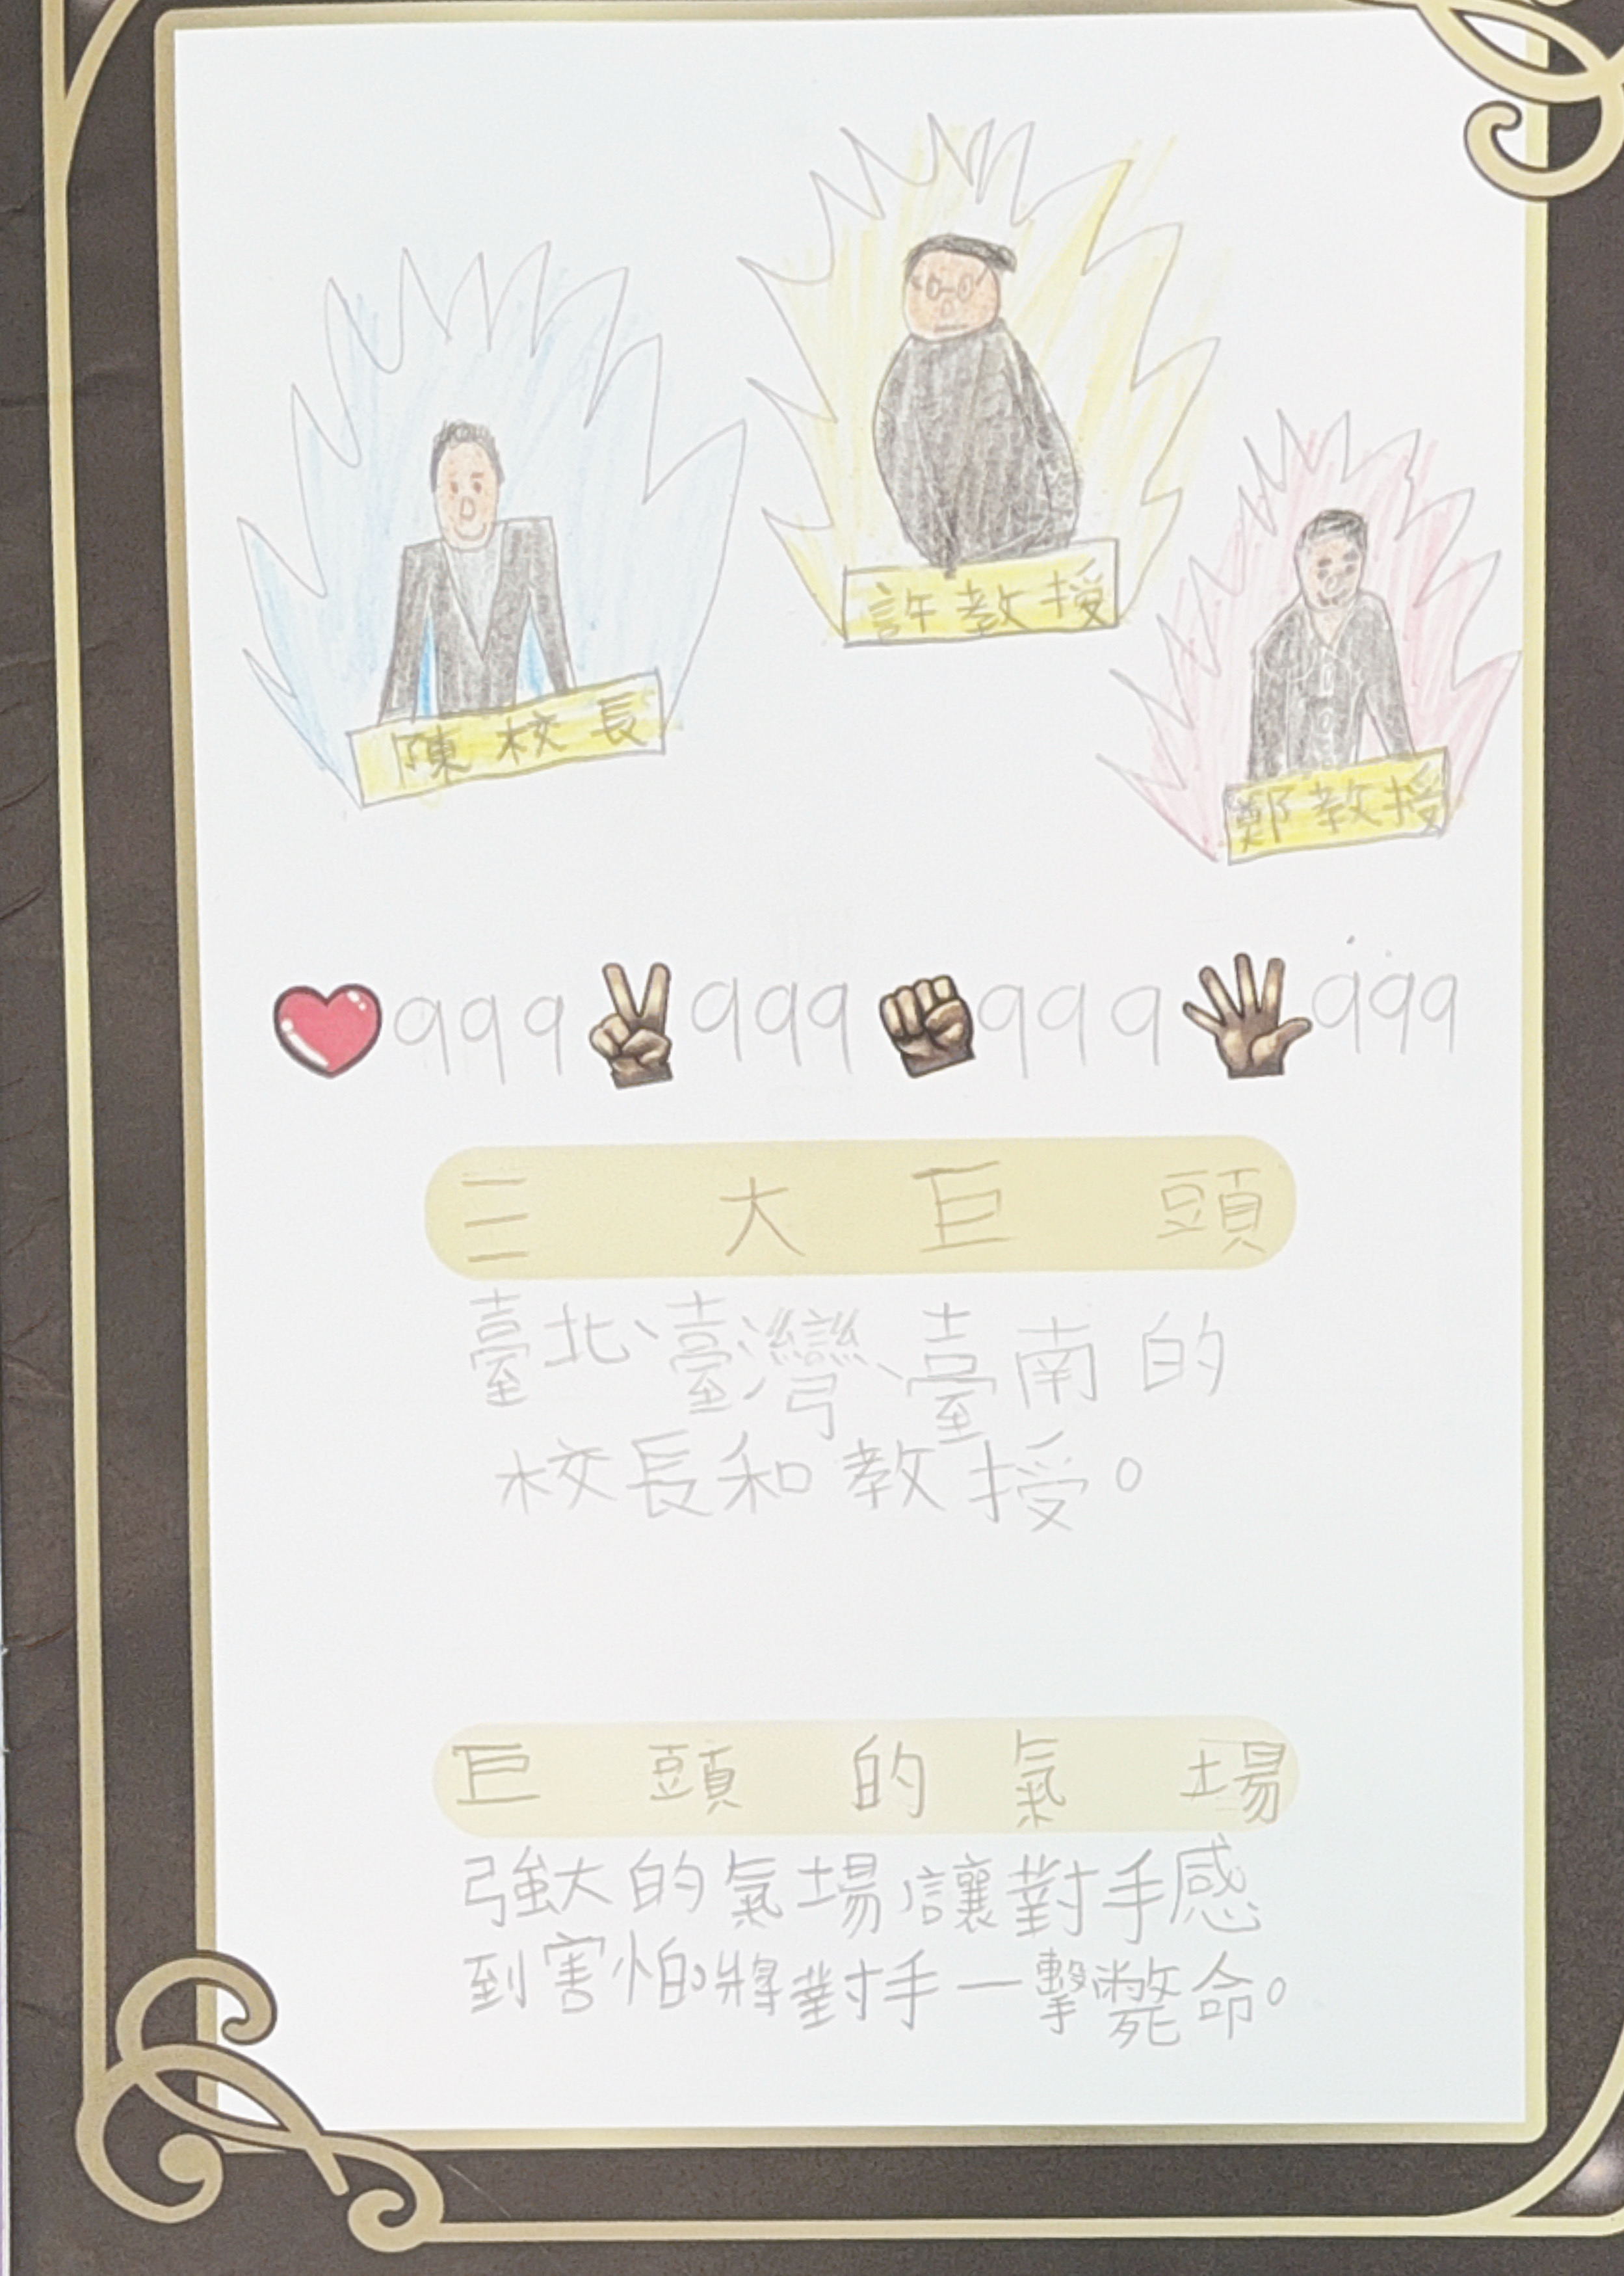 許教授
陳校長
鄭教授
999 999 999 999
三大巨頭
臺北、臺灣、臺南的
校長和教授。
巨頭的氣場
強大的氣場讓對手感
到害怕。將對手一擊斃命。